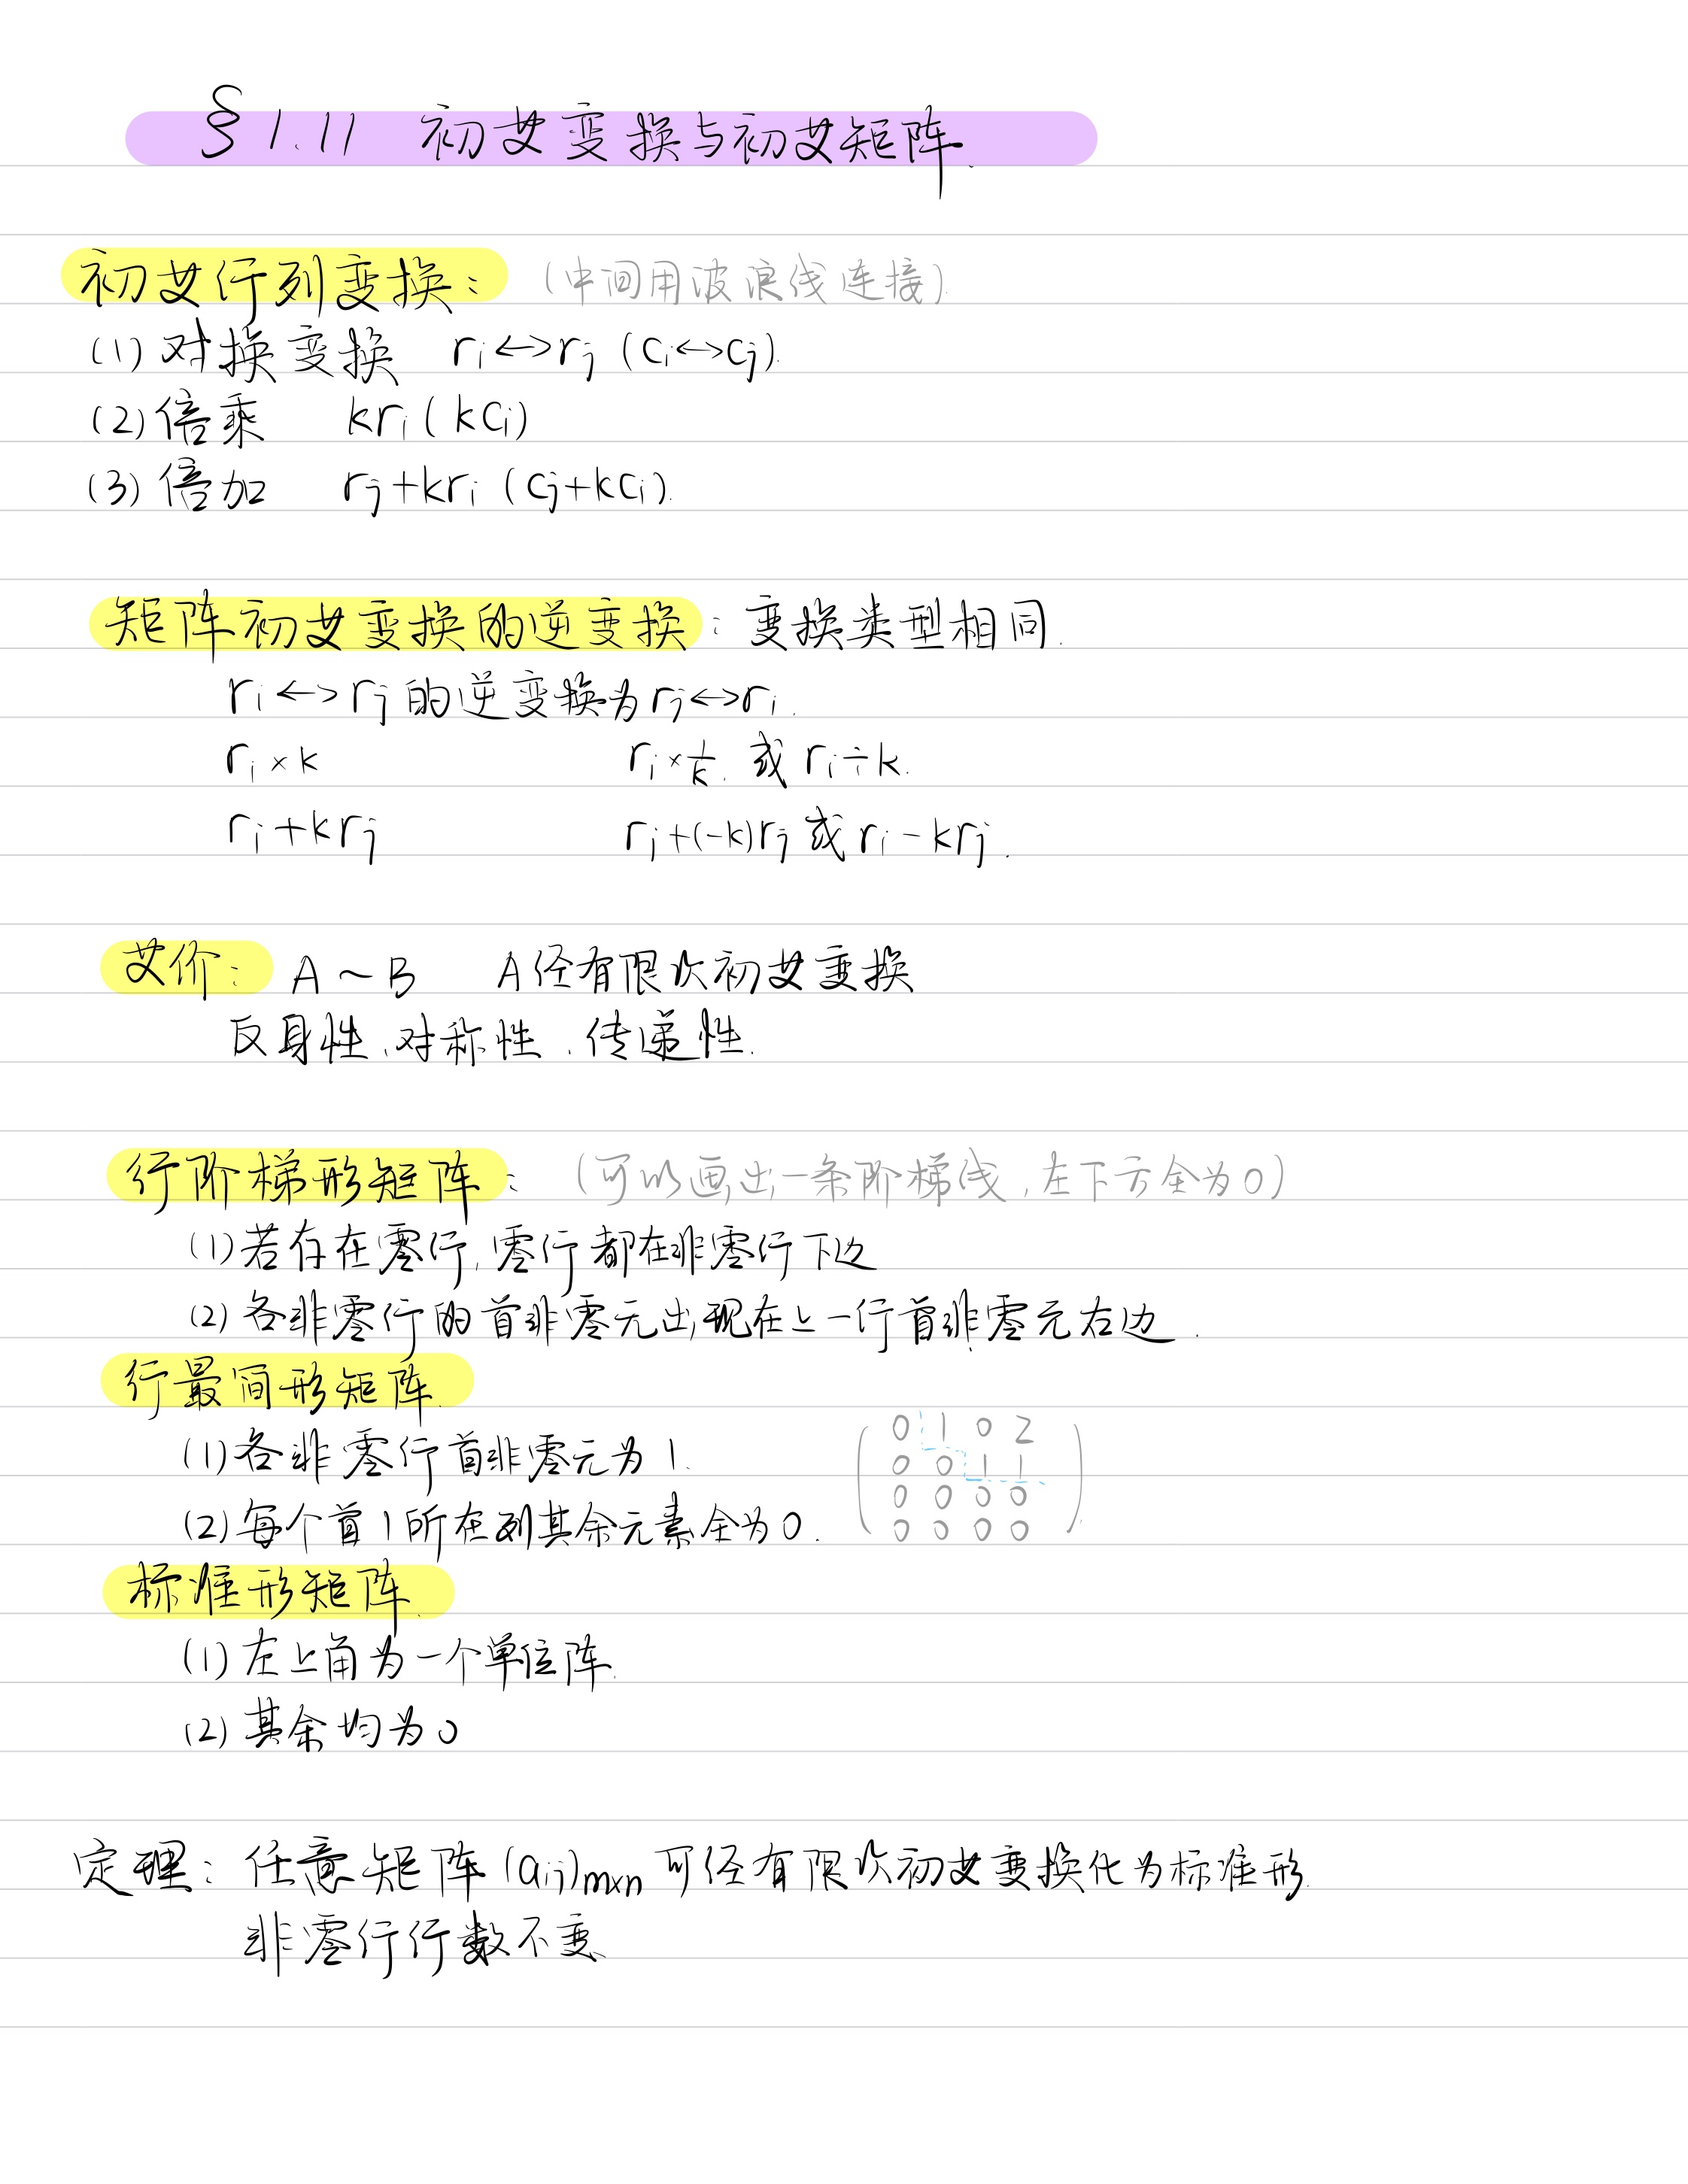 §1.11 初艾变换与初艾矩阵.
初艾行列变换：（中间用波浪线连接）
(1) 对换变换 ri↔rj (ci↔cj).
(2) 倍乘 kri (kci)
(3) 倍加 rj+kri (cj+kci).
矩阵初艾变换的逆变换：变换类型相同.
ri↔rj 的逆变换为 rj↔ri.
ri×k ri×1/k. 或 ri÷k.
ri+krj ri+(-k)rj 或 ri-krj.
艾价： A～B A经有限次初艾变换
反身性、对称性、传递性.
行阶梯形矩阵：（可以画出一条阶梯线，左下方全为0）
(1) 若存在零行，零行都在非零行下边
(2) 各非零行的首非零元出现在上一行首非零元右边.
行最简形矩阵.
(1) 各非零行首非零元为1.
(2) 每个首1所在列其余元素全为0.
0 1 0 2
0 0 1 1
0 0 0 0
0 0 0 0
标准形矩阵.
(1) 左上角为一个单位阵.
(2) 其余均为0
定理：任意矩阵(aij)m×n可经有限次初艾变换化为标准形.
非零行行数不变.